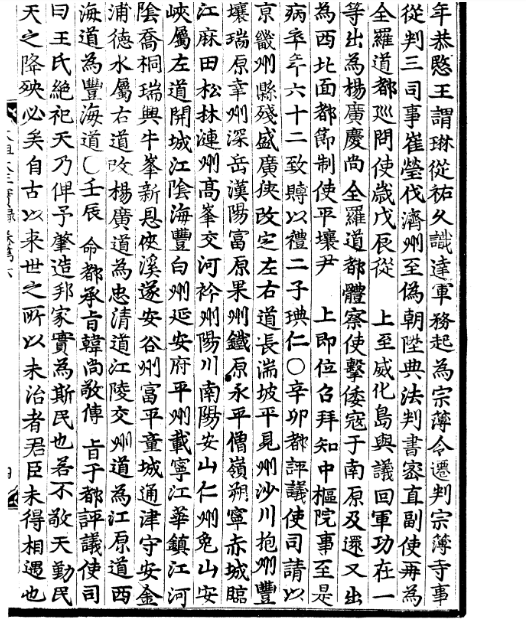 年恭愍王謂琳從祐久識達軍務起為宗薄令遷判宗薄寺事
從判三司事崔瑩伐濟州至偽朝陞典法判書密直副使再為
全羅道都巡問使歲戊辰從　上至威化島與議回軍功在一
等出為楊廣慶尙全羅道都體察使擊倭寇于南原及還又出
為西北面都節制使平壤尹　上即位召拜知中樞院事至是
病卒年六十二致賻以禮二子琠仁○辛卯都評議使司請以
京畿州縣殘盛廣俠改定左右道長湍坡平見州沙川抱州豐
壤瑞原幸州深岳漢陽富原果州鐵原永平僧嶺朔寧赤城臨
江麻田松林漣州高峯交河衿州陽川南陽安山仁州兔山安
峽屬左道開城江陰海豐白州延安府平州載寧江華鎮江河
陰喬桐瑞興牛峯新恩俠溪遂安谷州富平童城通津守安金
浦德水屬右道改楊廣道為忠清道江陵交州道為江原道西
海道為豐海道○壬辰　命都承旨韓尙敬傳　旨于都評議使司
曰王氏絶祀天乃俾予肇造邦家實為斯民也若不敬天勤民
天之降殃必矣自古以来世之所以未治者君臣未得相遇也